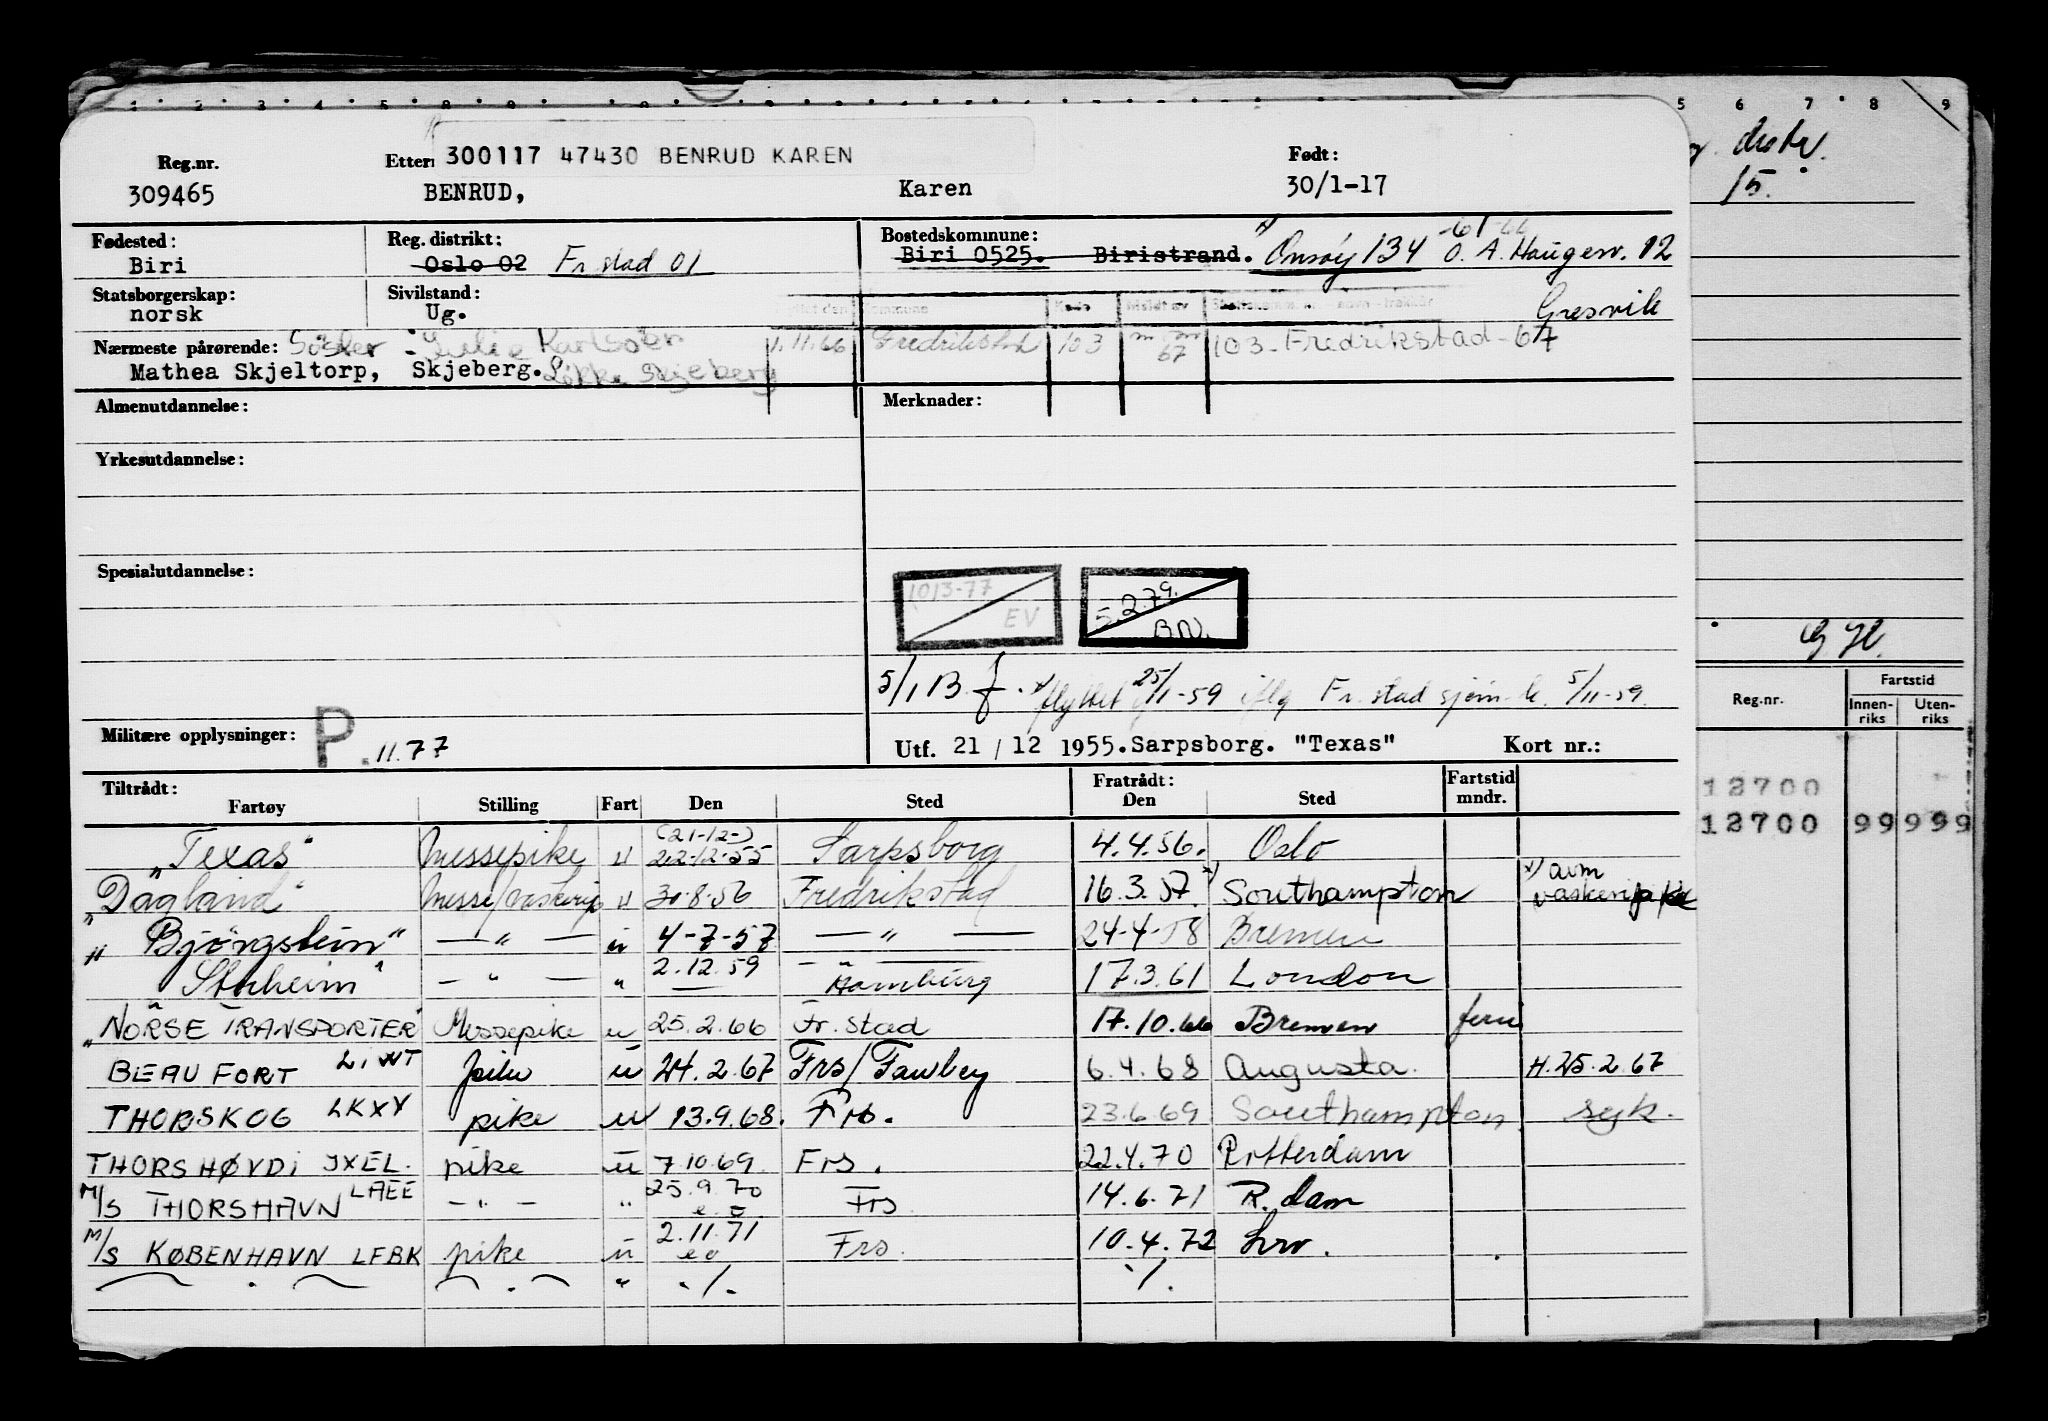 300117 47430 BENRUD KAREN
Reg.nr. Etter: Født:
309465 BENRUD, Karen 30/1-17
Fødested: Reg. distrikt: Bostedskommune:
Biri Oslo 02 Fr.stad 01 Biri 0525. Biristrand. Onsøy 134 O. A. Haugesv. 12
Gresvik
Statsborgerskap: Sivilstand:
norsk Ug.
Nærmeste pårørende: Søster - Karlsen 1.11.66 Fredrikstad 103 67 103 - Fredrikstad - 67
Mathea Skjeltorp, Skjeberg. Skjeberg
Almenutdannelse: Merknader:
Yrkesutdannelse:
Spesialutdannelse:
1013-77 EV
5.2.79. BN.
5/1 B x) flyttet 25/1-59 iflg Fr.stad sjøm.k. 5/11-59.
Militære opplysninger: P. 11.77
Utf. 21/12 1955. Sarpsborg. "Texas" Kort nr.:
Tiltrådt: Fratrådt: Fartstid
Fartøy Stilling Fart Den Sted Den Sted mndr.
(21-12-)
"Texas" Messepike u 22-12-55 Sarpsborg 4.4.56. Oslo
"Dagland" Messe/vaskeripike u 30-8-56 Fredrikstad 16.3.57 x) Southampton x) avm vaskeripike
"Bjørgsheim" — " — u 4-7-57 — " — 24-4-58 Bremen
— " — " 2.12.59 Hamburg 17.3.61 London
"NORSE TRANSPORTER" Messepike u 25.2.66 Fr.stad 17.10.66 Bremen ferie
BEAUFORT pike u 24.2.67 Frs/Fawley 6.4.68 Augusta. H.25.2.67
THORSKOG LKXY pike u 13.9.68. Frs. 23.6.69 Southampton syk.
THORSHØVDI JXEL. pike u 7.10.69 Frs. 22.4.70 Rotterdam
M/S THORSHAVN LAEE — " — " 25.9.70 Frs 14.6.71 R.dam
M/S KØBENHAVN LFBK pike u 2.11.71 Frs. 10.4.72
" ./. ./.
5 6 7 8 9
15.
Reg.nr. Fartstid
Innen-riks Uten-riks
12700
12700 99 999